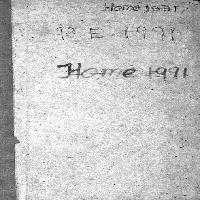 Home 1991
E 1991
Home 1991